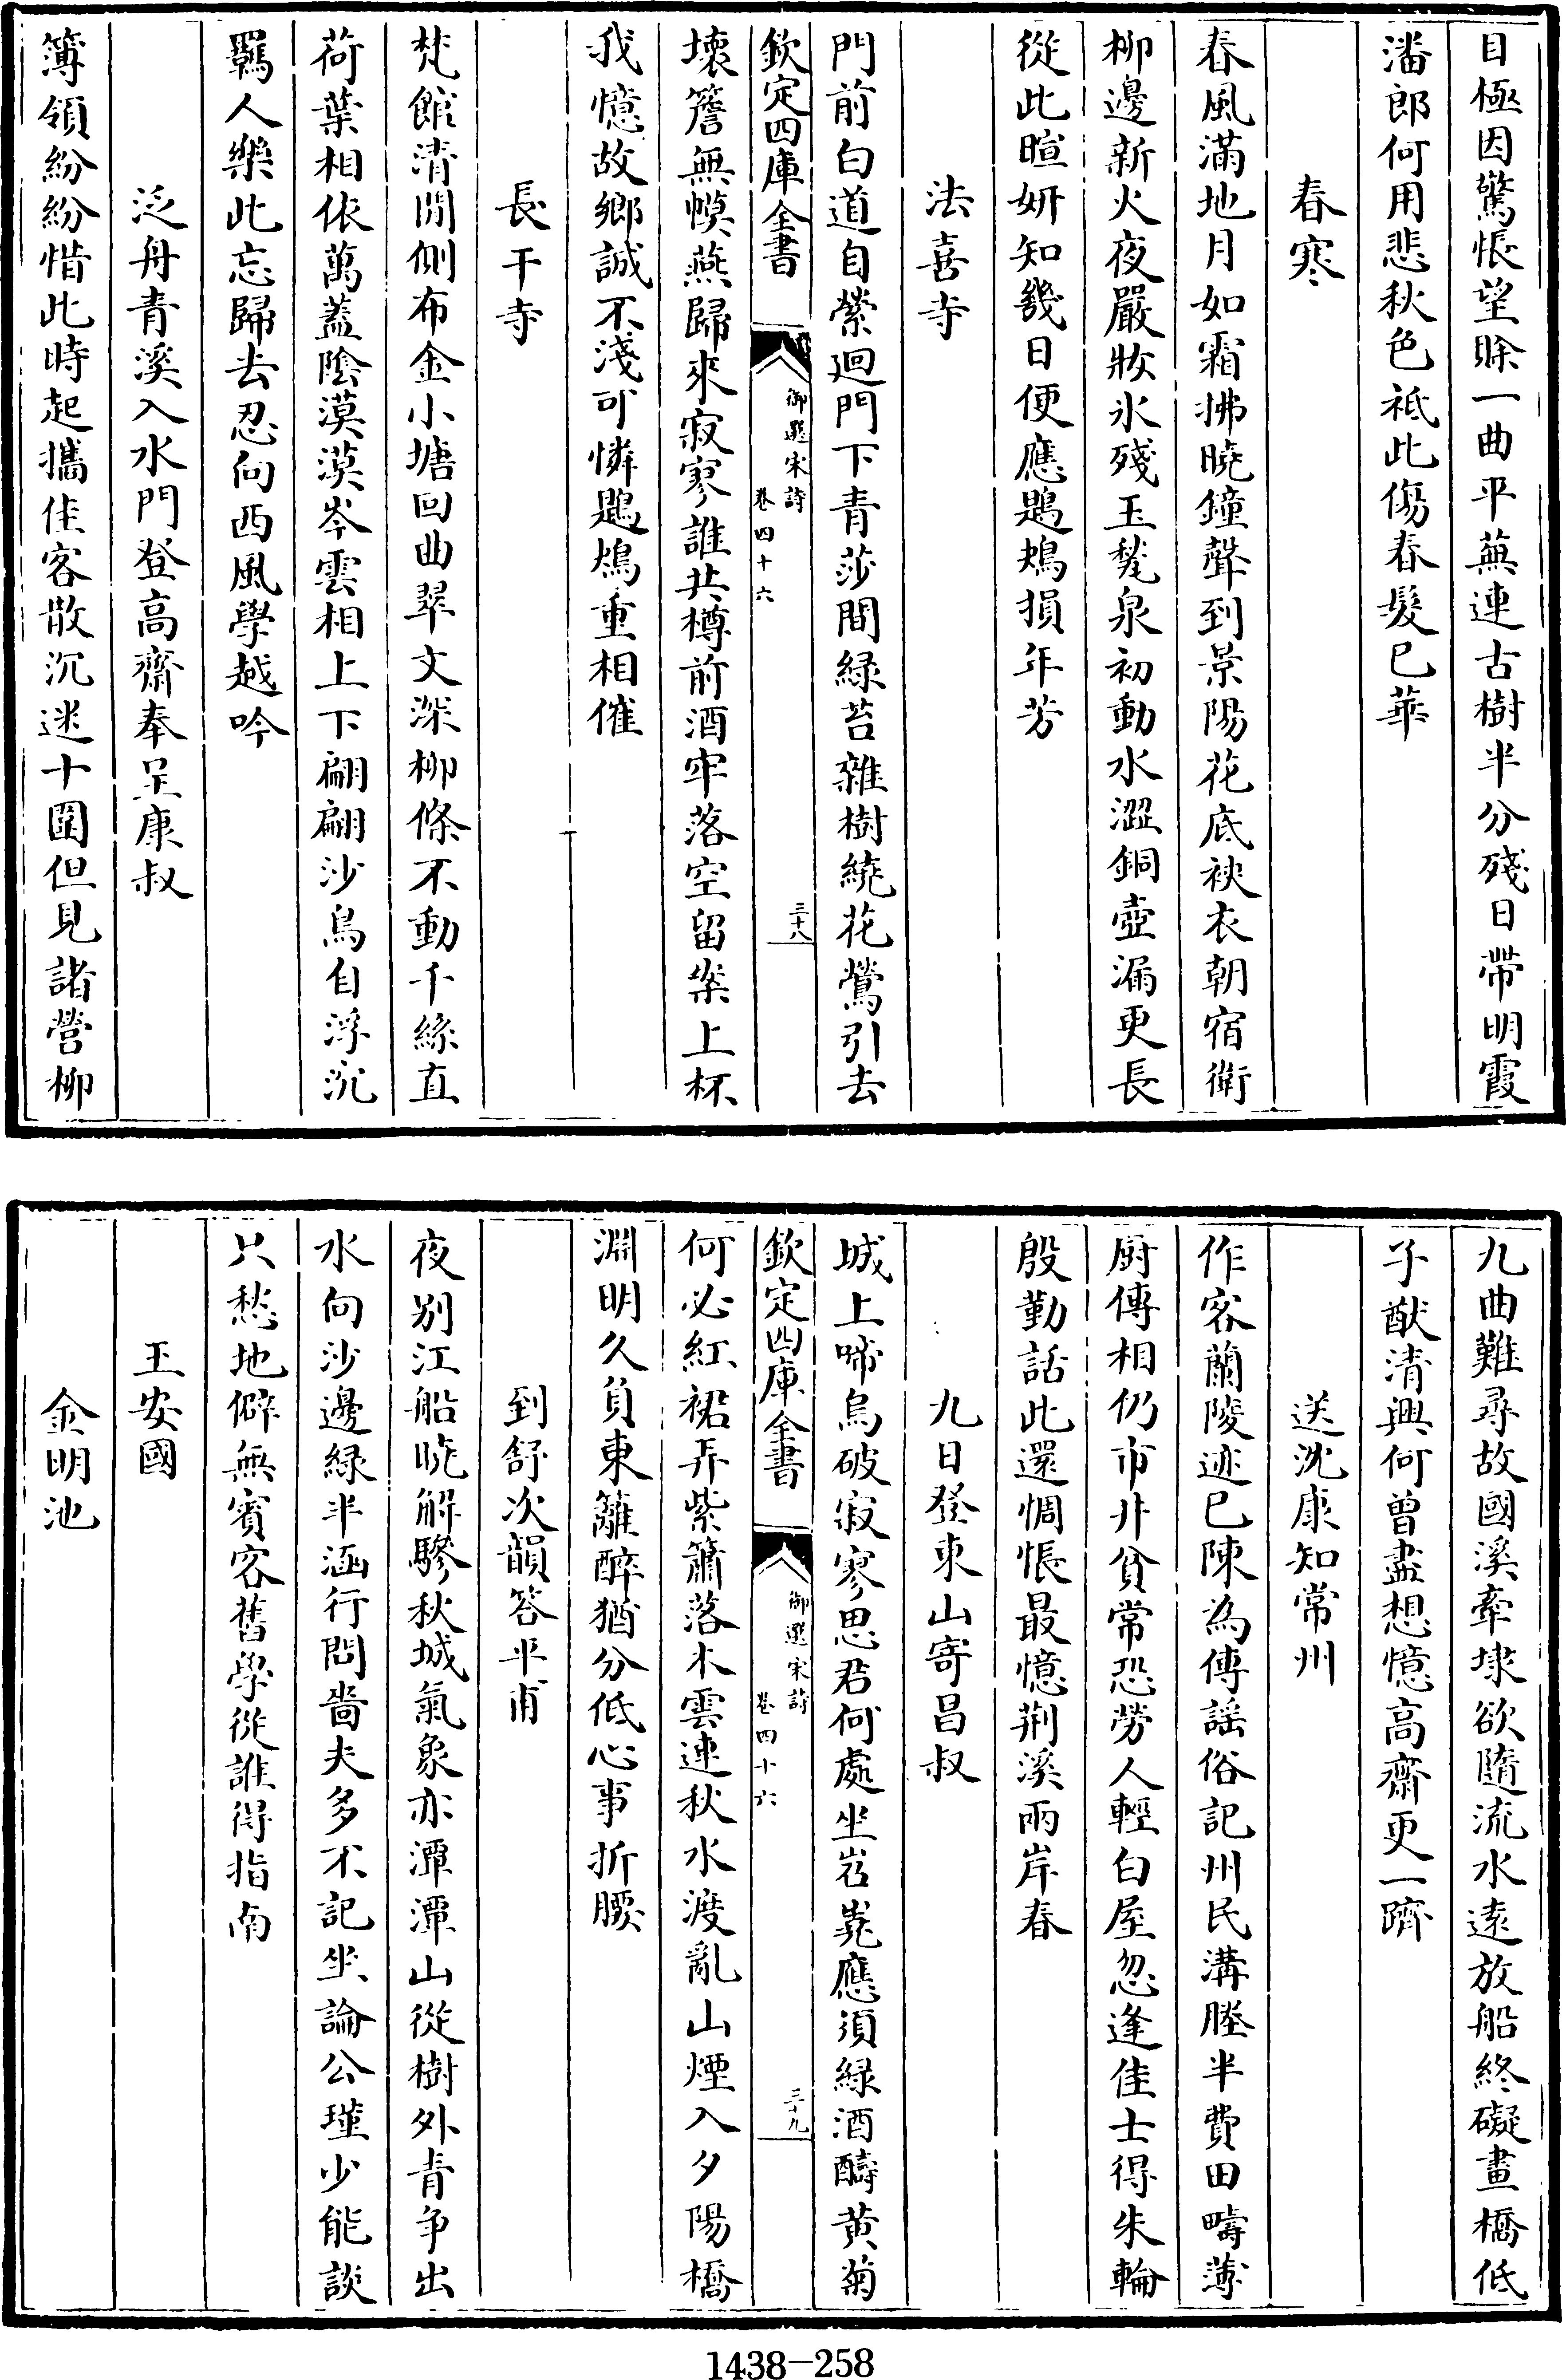 目極因驚悵望賖一曲平蕪連古樹半分殘日帶明霞
潘郎何用悲秋色祗此傷春髮已華
春寒
春風滿地月如霜拂曉鐘聲到景陽花底裌衣朝宿衛
柳邊新火夜嚴妝氷殘玉甃泉初動水澀銅壺漏更長
從此暄妍知幾日便應鶗鴂損年芳
法喜寺
門前白道自縈迴門下青莎間緑苔雜樹繞花鶯引去
欽定四庫全書
御選宋詩
卷四十六
三十八
壞簷無幙燕歸來寂寥誰共樽前酒牢落空留案上杯
我憶故鄉誠不淺可憐鶗鴂重相催
長干寺
梵館清閒側布金小塘回曲翠文深柳條不動千絲直
荷葉相依萬蓋陰漠漠岑雲相上下翩翩沙鳥自浮沉
羈人樂此忘歸去忍向西風學越吟
泛舟青溪入水門登高齋奉呈康叔
簿領紛紛惜此時起攜佳客散沉迷十圍但見諸營柳
九曲難尋故國溪牽埭欲隨流水遠放船終礙畫橋低
子猷清興何曾盡想憶高齋更一躋
送沈康知常州
作客蘭陵迹已陳為傳謡俗記州民溝塍半費田疇薄
厨傳相仍市井貧常恐勞人輕白屋忽逢佳士得朱輪
殷勤話此還惆悵最憶荆溪兩岸春
九日登東山寄昌叔
城上啼烏破寂寥思君何處坐岧嶤應須緑酒醻黄菊
欽定四庫全書
御選宋詩
卷四十六
三十九
何必紅裙弄紫簫落木雲連秋水渡亂山煙入夕陽橋
淵明久負東籬醉猶分低心事折腰
到舒次韻答平甫
夜别江船曉解驂秋城氣象亦潭潭山從樹外青争出
水向沙邊緑半涵行問嗇夫多不記坐論公瑾少能談
只愁地僻無賓客舊學從誰得指南
王安國
金明池
1438-258